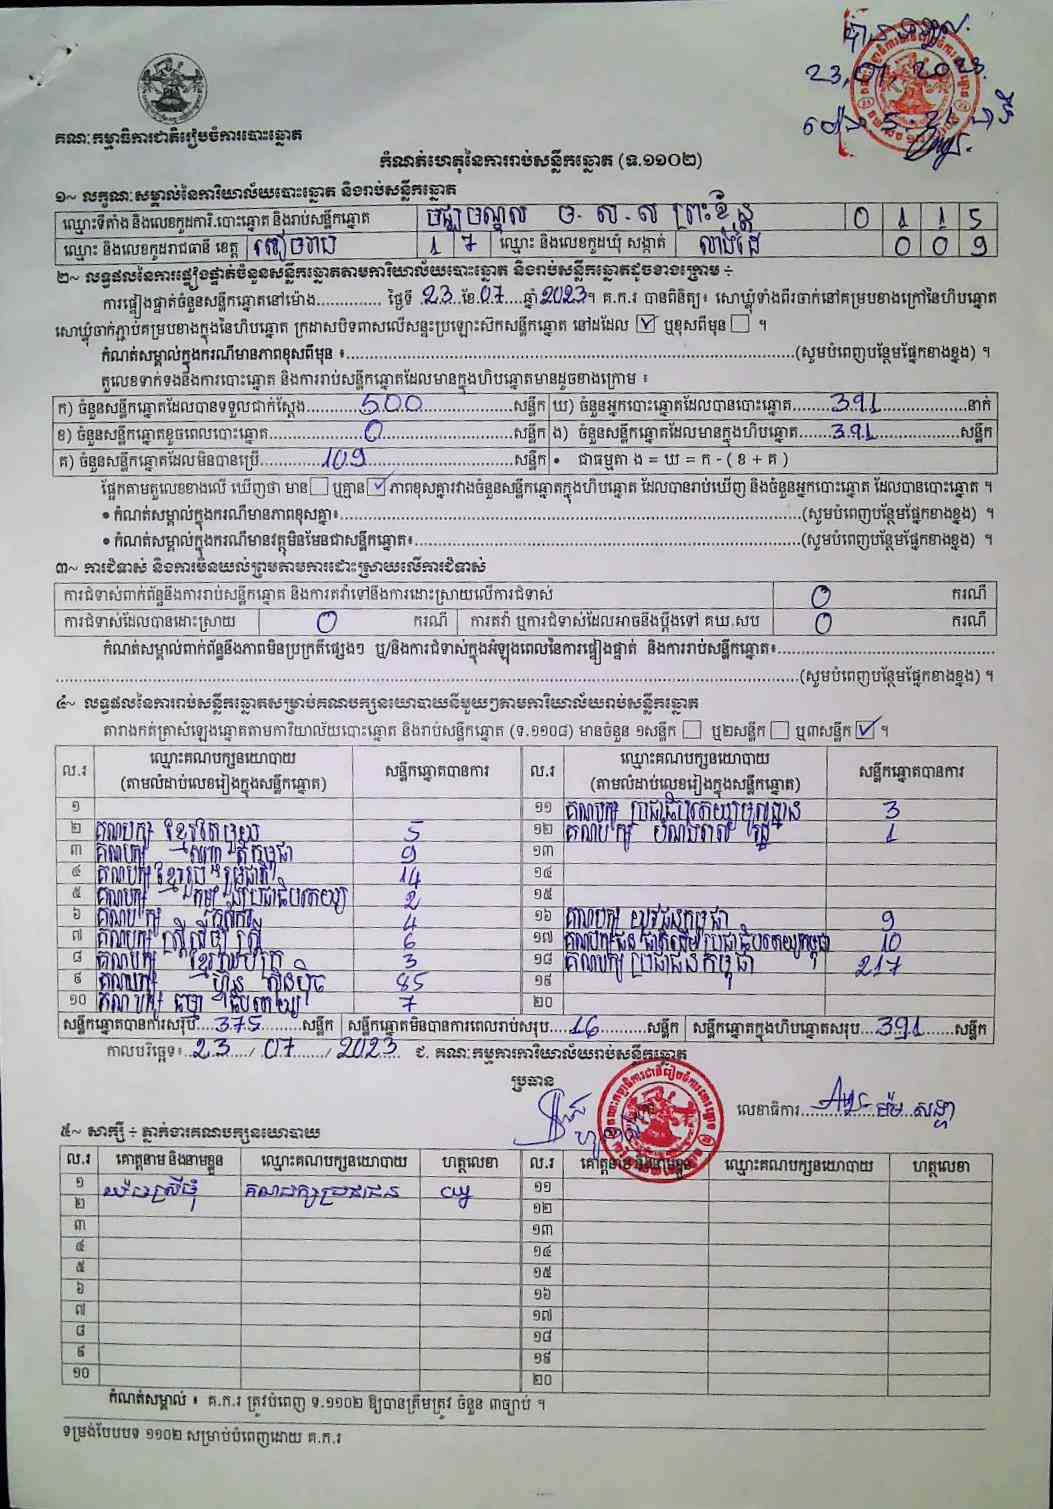 បានទទួល
23, 07, 2023.
ម៉ោង 5:35 នាទី
គណៈកម្មាធិការជាតិរៀបចំការបោះឆ្នោត
កំណត់ហេតុនៃការរាប់សន្លឹកឆ្នោត (ទ.១១០២)
១~ លក្ខណៈសម្គាល់នៃការិយាល័យបោះឆ្នោត និងរាប់សន្លឹកឆ្នោត
ឈ្មោះទីតាំង និងលេខកូដការិ.បោះឆ្នោត និងរាប់សន្លឹកឆ្នោត 0 1 1 5
ឈ្មោះ និងលេខកូដរាជធានី ខេត្ត សៀមរាប 1 7 ឈ្មោះ និងលេខកូដឃុំ សង្កាត់ 0 0 9
២~ លទ្ធផលនៃការផ្ទៀងផ្ទាត់ចំនួនសន្លឹកឆ្នោតតាមការិយាល័យបោះឆ្នោត និងរាប់សន្លឹកឆ្នោតដូចខាងក្រោម ÷
ការផ្ទៀងផ្ទាត់ចំនួនសន្លឹកឆ្នោតនៅម៉ោង.............. ថ្ងៃទី 23 ខែ 07 ឆ្នាំ 2023។ គ.ក.រ បានពិនិត្យ៖ សោឃ្លុំទាំងពីរចាក់នៅគម្របខាងក្រៅនៃហិបឆ្នោត
សោឃ្លុំចាក់ភ្ជាប់គម្របខាងក្នុងនៃហិបឆ្នោត ក្រដាសបិទពាសលើសន្ទះប្រឡោះស៊កសន្លឹកឆ្នោត នៅដដែល ☑ ឬខុសពីមុន ☐ ។
កំណត់សម្គាល់ក្នុងករណីមានភាពខុសពីមុន ៖..............(សូមបំពេញបន្ថែមផ្នែកខាងខ្នង) ។
តួលេខទាក់ទងនឹងការបោះឆ្នោត និងការរាប់សន្លឹកឆ្នោតដែលមានក្នុងហិបឆ្នោតមានដូចខាងក្រោម ៖
ក) ចំនួនសន្លឹកឆ្នោតដែលបានទទួលជាក់ស្តែង 500 សន្លឹក ឃ) ចំនួនអ្នកបោះឆ្នោតដែលបានបោះឆ្នោត 391 នាក់
ខ) ចំនួនសន្លឹកឆ្នោតខូចពេលបោះឆ្នោត 0 សន្លឹក ង) ចំនួនសន្លឹកឆ្នោតដែលមានក្នុងហិបឆ្នោត 391 សន្លឹក
គ) ចំនួនសន្លឹកឆ្នោតដែលមិនបានប្រើ 109 សន្លឹក • ជាធម្មតា ង = ឃ = ក - ( ខ + គ )
ផ្អែកតាមតួលេខខាងលើ ឃើញថា មាន ☐ ឬគ្មាន ☑ ភាពខុសគ្នារវាងចំនួនសន្លឹកឆ្នោតក្នុងហិបឆ្នោត ដែលបានរាប់ឃើញ និងចំនួនអ្នកបោះឆ្នោត ដែលបានបោះឆ្នោត ។
• កំណត់សម្គាល់ក្នុងករណីមានភាពខុសគ្នា៖..............(សូមបំពេញបន្ថែមផ្នែកខាងខ្នង) ។
• កំណត់សម្គាល់ក្នុងករណីមានវត្ថុមិនមែនជាសន្លឹកឆ្នោត៖..............(សូមបំពេញបន្ថែមផ្នែកខាងខ្នង) ។
៣~ ការជំទាស់ និងការមិនយល់ព្រមតាមការដោះស្រាយលើការជំទាស់
ការជំទាស់ពាក់ព័ន្ធនឹងការរាប់សន្លឹកឆ្នោត និងការតវ៉ាទៅនឹងការដោះស្រាយលើការជំទាស់ 0 ករណី
ការជំទាស់ដែលបានដោះស្រាយ 0 ករណី ការតវ៉ា ឬការជំទាស់ដែលអាចនឹងប្តឹងទៅ គឃ.សប 0 ករណី
កំណត់សម្គាល់ពាក់ព័ន្ធនឹងភាពមិនប្រក្រតីផ្សេងៗ ឬ/និងការជំទាស់ក្នុងអំឡុងពេលនៃការផ្ទៀងផ្ទាត់ និងការរាប់សន្លឹកឆ្នោត៖..............
..............(សូមបំពេញបន្ថែមផ្នែកខាងខ្នង) ។
៤~ លទ្ធផលនៃការរាប់សន្លឹកឆ្នោតសម្រាប់គណបក្សនយោបាយនីមួយៗតាមការិយាល័យរាប់សន្លឹកឆ្នោត
តារាងកត់ត្រាសំឡេងឆ្នោតតាមការិយាល័យបោះឆ្នោត និងរាប់សន្លឹកឆ្នោត (ទ.១១០៨) មានចំនួន ១សន្លឹក ☐ ឬ២សន្លឹក ☐ ឬ៣សន្លឹក ☑ ។
ល.រ ឈ្មោះគណបក្សនយោបាយ (តាមលំដាប់លេខរៀងក្នុងសន្លឹកឆ្នោត) សន្លឹកឆ្នោតបានការ ល.រ ឈ្មោះគណបក្សនយោបាយ (តាមលំដាប់លេខរៀងក្នុងសន្លឹកឆ្នោត) សន្លឹកឆ្នោតបានការ
១ ១១ គណបក្ស ប្រជាធិបតេយ្យមូលដ្ឋាន 3
២ គណបក្ស ខ្មែរតែមួយ 5 ១២ គណបក្ស 1
៣ គណបក្ស សញ្ជាតិកម្ពុជា 9 ១៣
៤ គណបក្ស ខ្មែររួបរួមជាតិ 14 ១៤
៥ គណបក្ស កម្លាំងប្រជាធិបតេយ្យ 2 ១៥
៦ គណបក្ស កសិករ 4 ១៦ គណបក្ស យុវជនកម្ពុជា 9
៧ គណបក្ស ស្ត្រីដើម្បីស្ត្រី 6 ១៧ គណបក្ស ជនជាតិដើមប្រជាធិបតេយ្យកម្ពុជា 10
៨ គណបក្ស ខ្មែរអភិរក្ស 3 ១៨ គណបក្ស ប្រជាជនកម្ពុជា 217
៩ គណបក្ស ហ៊្វុនស៊ិនប៉ិច 85 ១៩
១០ គណបក្ស ធម្មាធិបតេយ្យ 7 ២០
សន្លឹកឆ្នោតបានការសរុប 375 សន្លឹក សន្លឹកឆ្នោតមិនបានការពេលរាប់សរុប 16 សន្លឹក សន្លឹកឆ្នោតក្នុងហិបឆ្នោតសរុប 391 សន្លឹក
កាលបរិច្ឆេទ៖ 23 / 07 / 2023 ជ. គណៈកម្មការការិយាល័យរាប់សន្លឹកឆ្នោត
ប្រធាន
លេខាធិការ
៥~ សាក្សី ÷ ភ្នាក់ងារគណបក្សនយោបាយ
ល.រ គោត្តនាម និងនាមខ្លួន ឈ្មោះគណបក្សនយោបាយ ហត្ថលេខា ល.រ គោត្តនាម និងនាមខ្លួន ឈ្មោះគណបក្សនយោបាយ ហត្ថលេខា
១ គណបក្សប្រជាជន ១១
២ ១២
៣ ១៣
៤ ១៤
៥ ១៥
៦ ១៦
៧ ១៧
៨ ១៨
៩ ១៩
១០ ២០
កំណត់សម្គាល់ ៖ គ.ក.រ ត្រូវបំពេញ ទ.១១០២ ឱ្យបានត្រឹមត្រូវ ចំនួន ៣ច្បាប់ ។
ទម្រង់បែបបទ ១១០២ សម្រាប់បំពេញដោយ គ.ក.រ